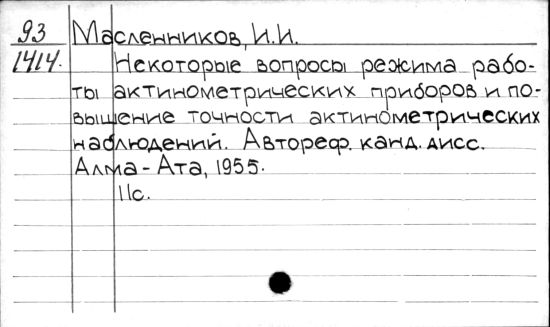 93 Масленников, И.И.
1414. Некоторые вопросы режима рабо-
ты актинометрических приборов и по-
вышение точности актинометрических
наблюдений. Автореф. канд. дисс.
Алма-Ата, 1955.
11с.